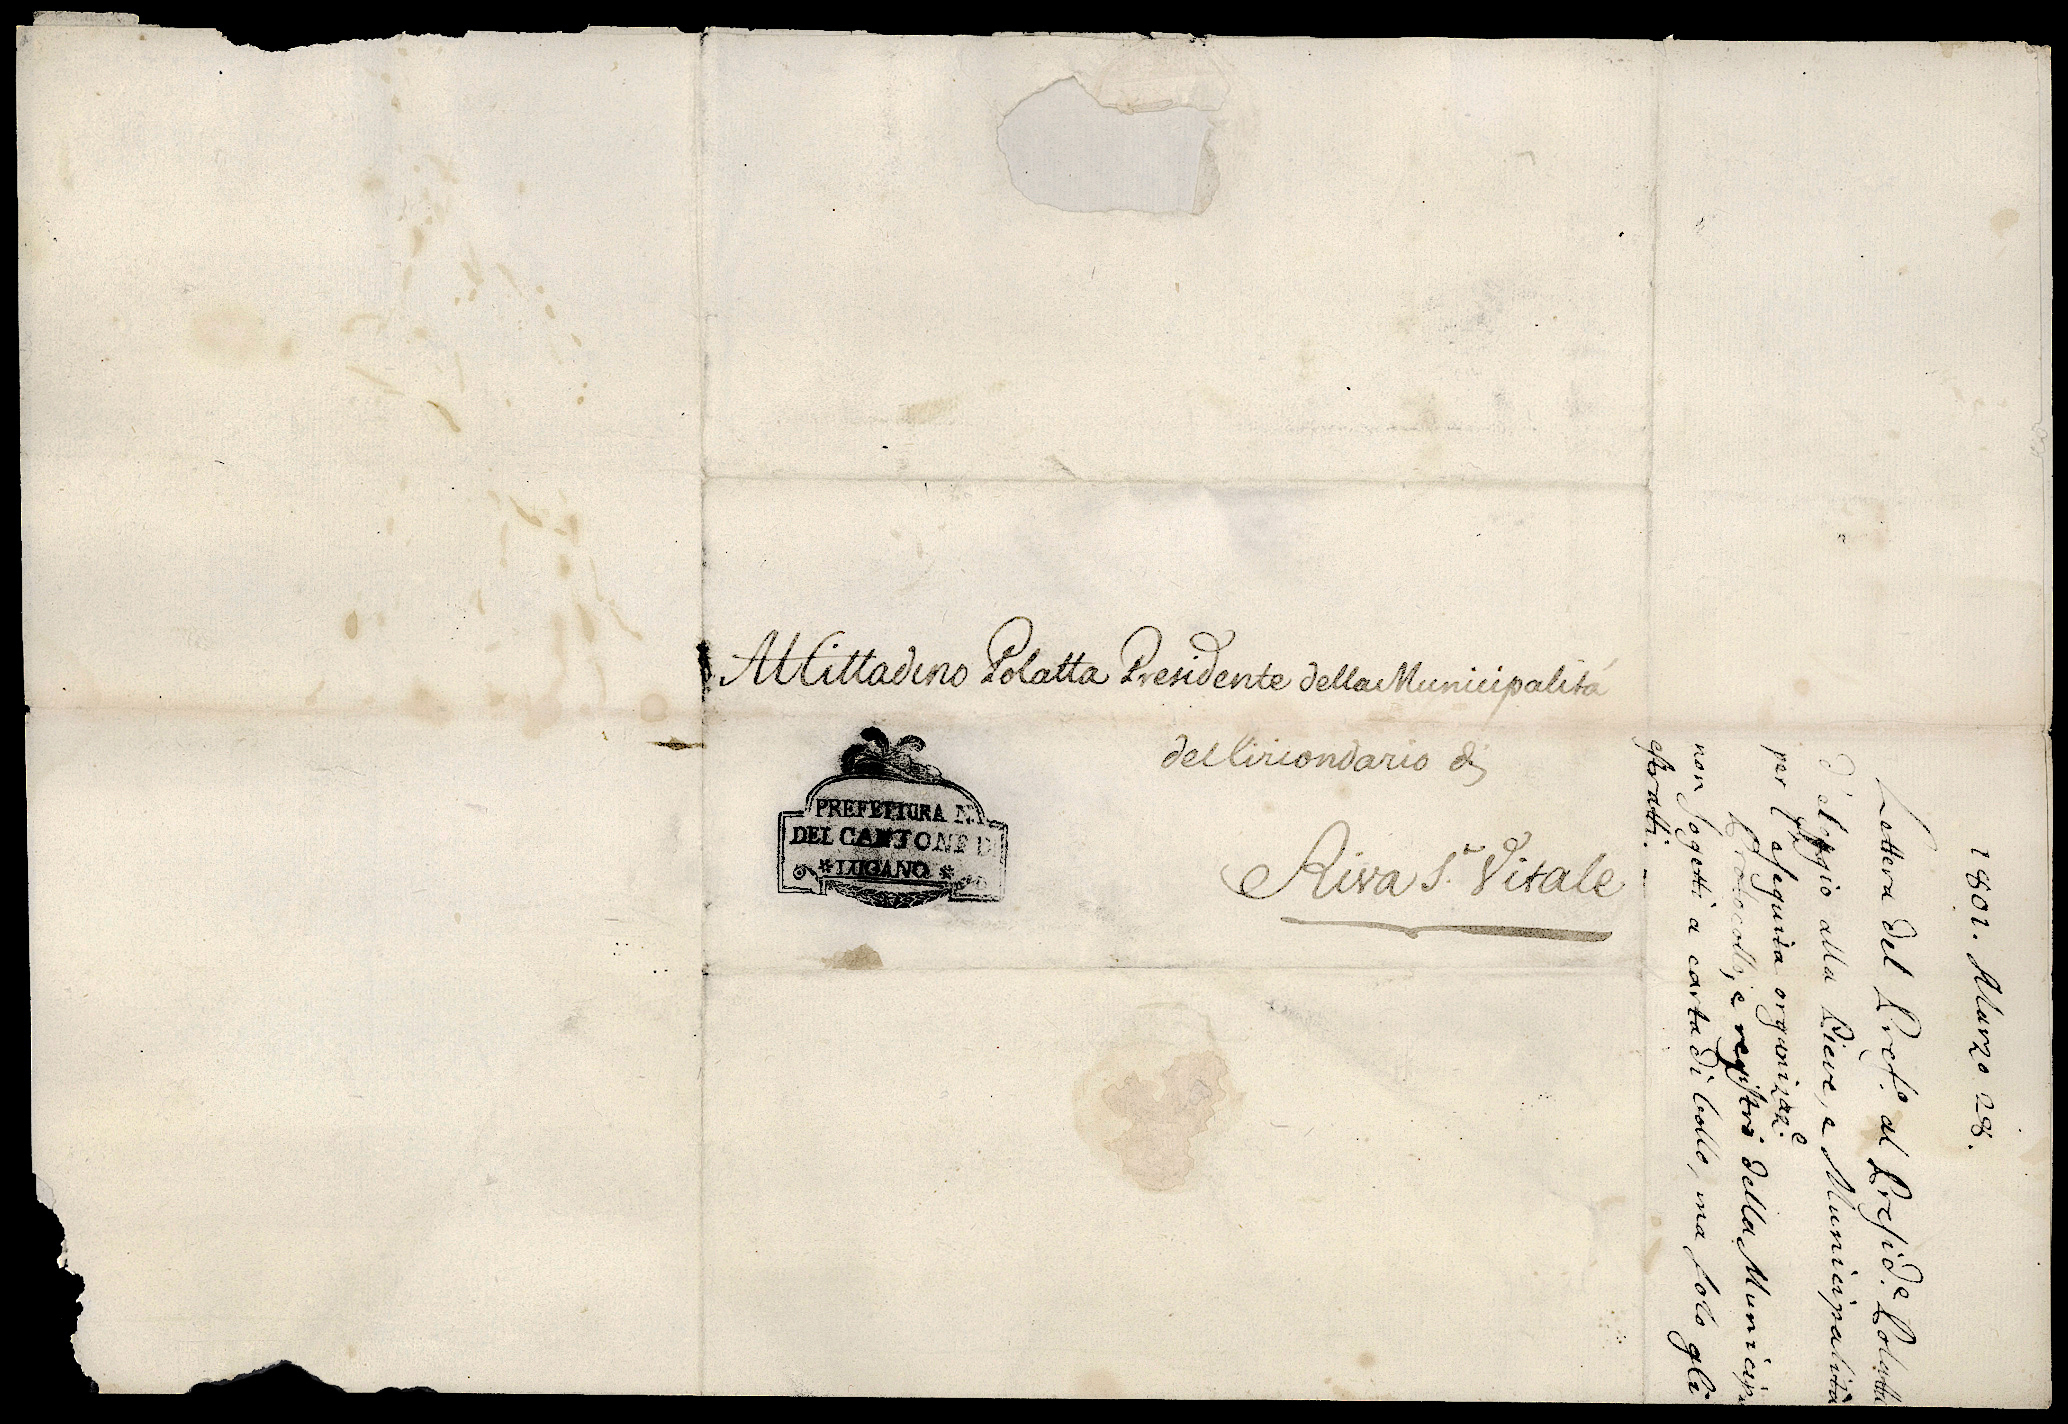 Al Cittadino Polatta Presidente della Municipalitá
del Circondario di
Riva S.r Vitale
PREFETTURA N.
DEL CANTONE DI
* LUGANO *
1801. Marzo 28.
Lettera del Pref.o al Presid.e Polatta
d'elogio alla Pieve, e Municipalità
per l'eseguita organizaz.e
Protocolli, e registri della Municip
non sogetti a carta di bollo, ma solo gli
estratti.